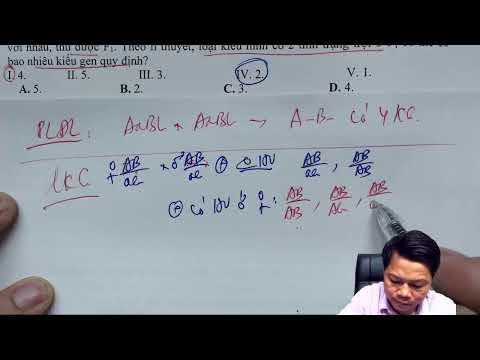 với nhau, thu được F₁. Theo lí thuyết, loại kiểu hình có 2 tính trạng trội
bao nhiêu kiểu gen quy định?
I 4. II. 5. III. 3. IV. 2. V. 1.
A. 5. B. 2. C. 3. D. 4.
PLĐL: AaBb × AaBb → A-B- có 4 KG.
LKG ♀ AB/ab × ♂ AB/ab ⊕ HV AB/ab, AB/AB
⊕ có HV ở ♀: AB/AB, AB/Ab, AB/